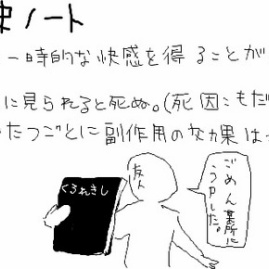 史ノート
一時的な快感を得ることが
に見られると死ぬ。(死因もだ
たつごとに副作用の効果は
くろれきし
友人
ごめん某所に
うpした。